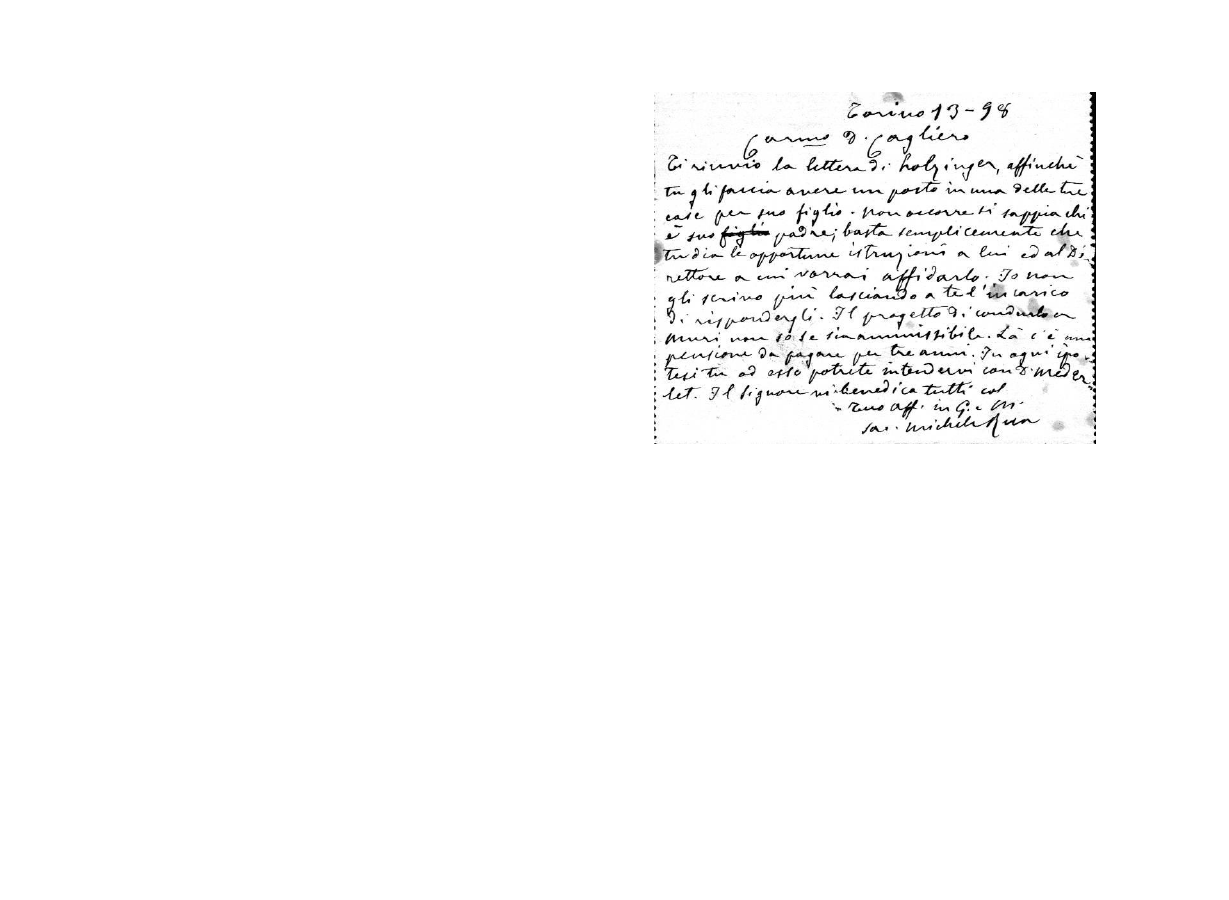 Torino 13-98
Carmo D. Cagliero
Ti rinvio la lettera di Holzinger, affinchè
tu gli faccia avere un posto in una delle tre
case per suo figlio. Non occorre si sappia chi
è suo figlio padre; basta semplicemente che
tu dia le opportune istruzioni a lui ed al Di-
rettore a cui vorrai affidarlo. Io non
gli scrivo più lasciando a te l'incarico
di rispondergli. Il progetto di condurlo a
Muri non so se sia ammissibile. Là c'è una
pensione da pagare per tre anni. In ogni ipo-
tesi tu ad esso potrete intendervi con D. Meder-
let. Il Signore vi benedica tutti col
Tuo aff. in G. e M.
Sac. Michele Rua